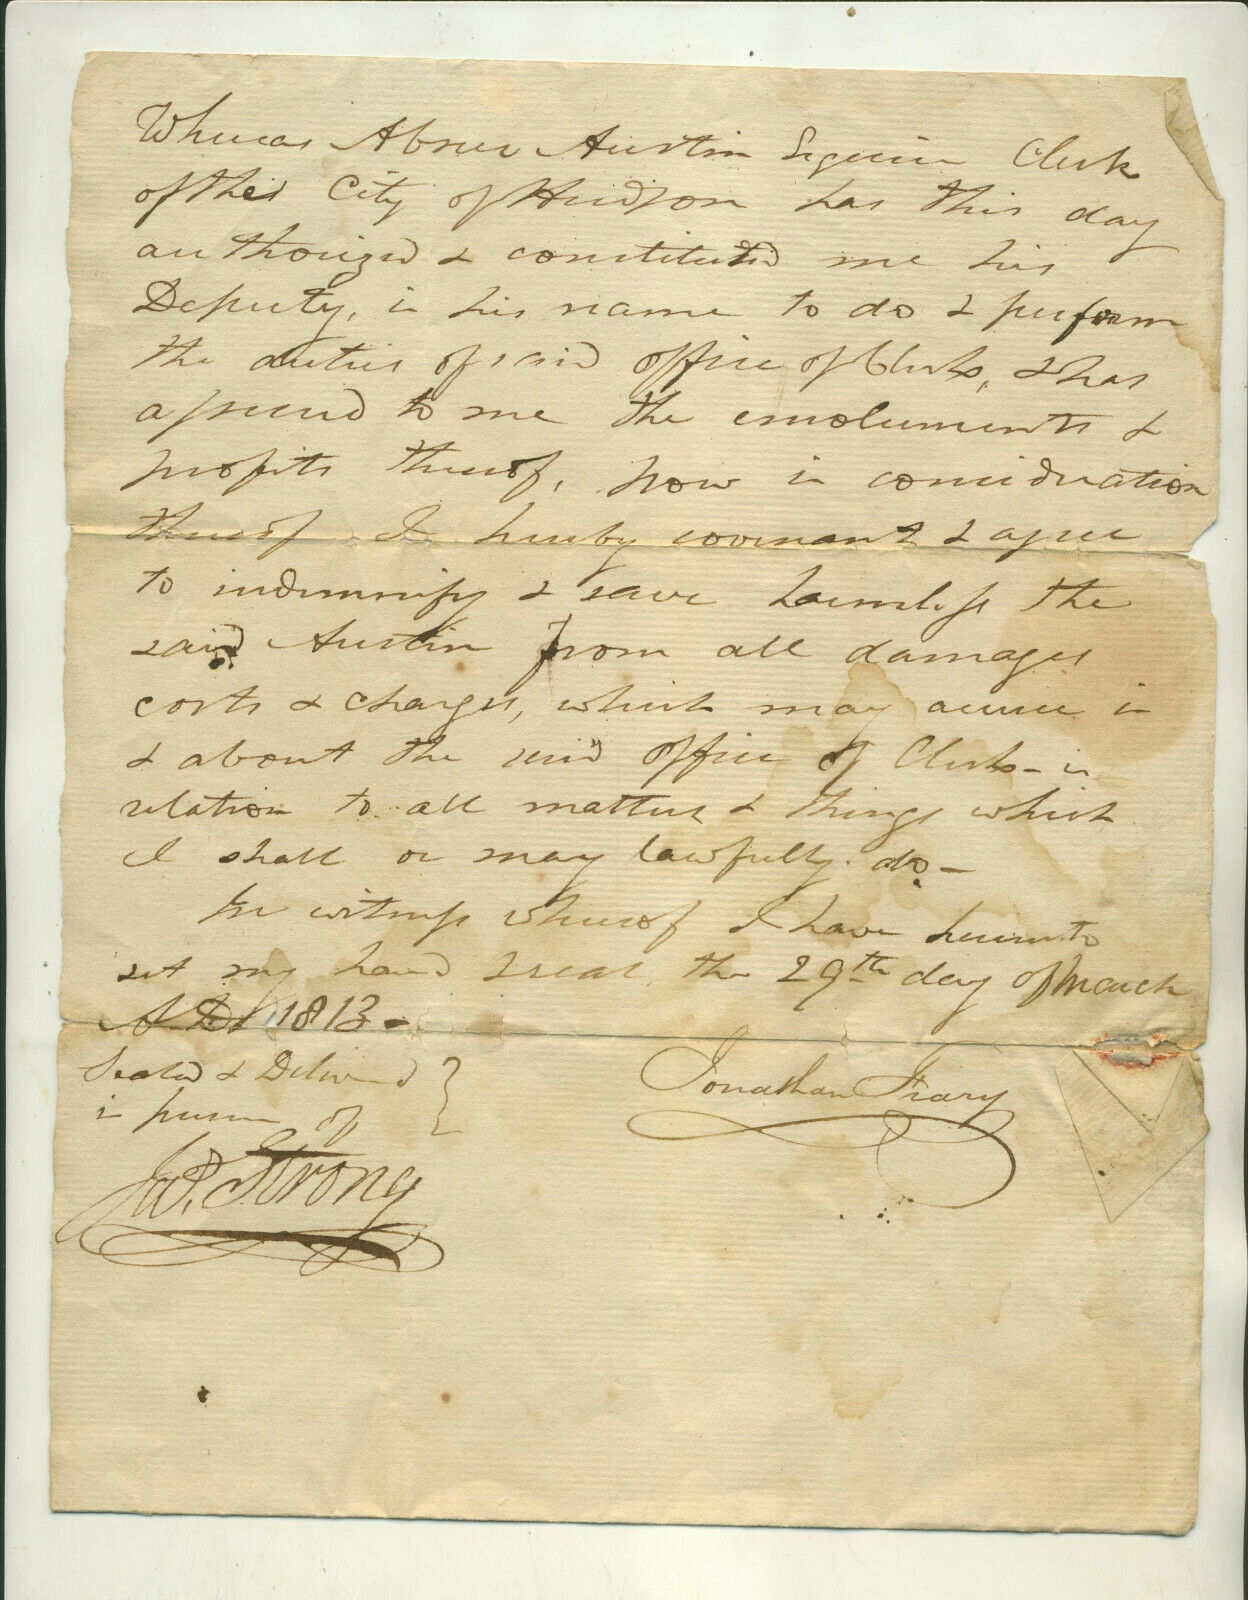 Whereas Abner Austin Esquire Clerk
of the City of Hudson has this day
authorized & constituted me his
Deputy, in his name to do & perform
the duties of said office of Clerk, & has
assured to me the emoluments &
profits thereof, now in consideration
thereof I hereby covenant & agree
to indemnify & save harmless the
said Austin from all damages
costs & charges, which may accrue in
& about the said office of Clerk - in
relation to all matters & things which
I shall or may lawfully do -
In witness whereof I have hereunto
set my hand & seal the 29th day of March
A.D. 1813 -
Sealed & Delivered
in presence of
Jonathan Frary
Strong